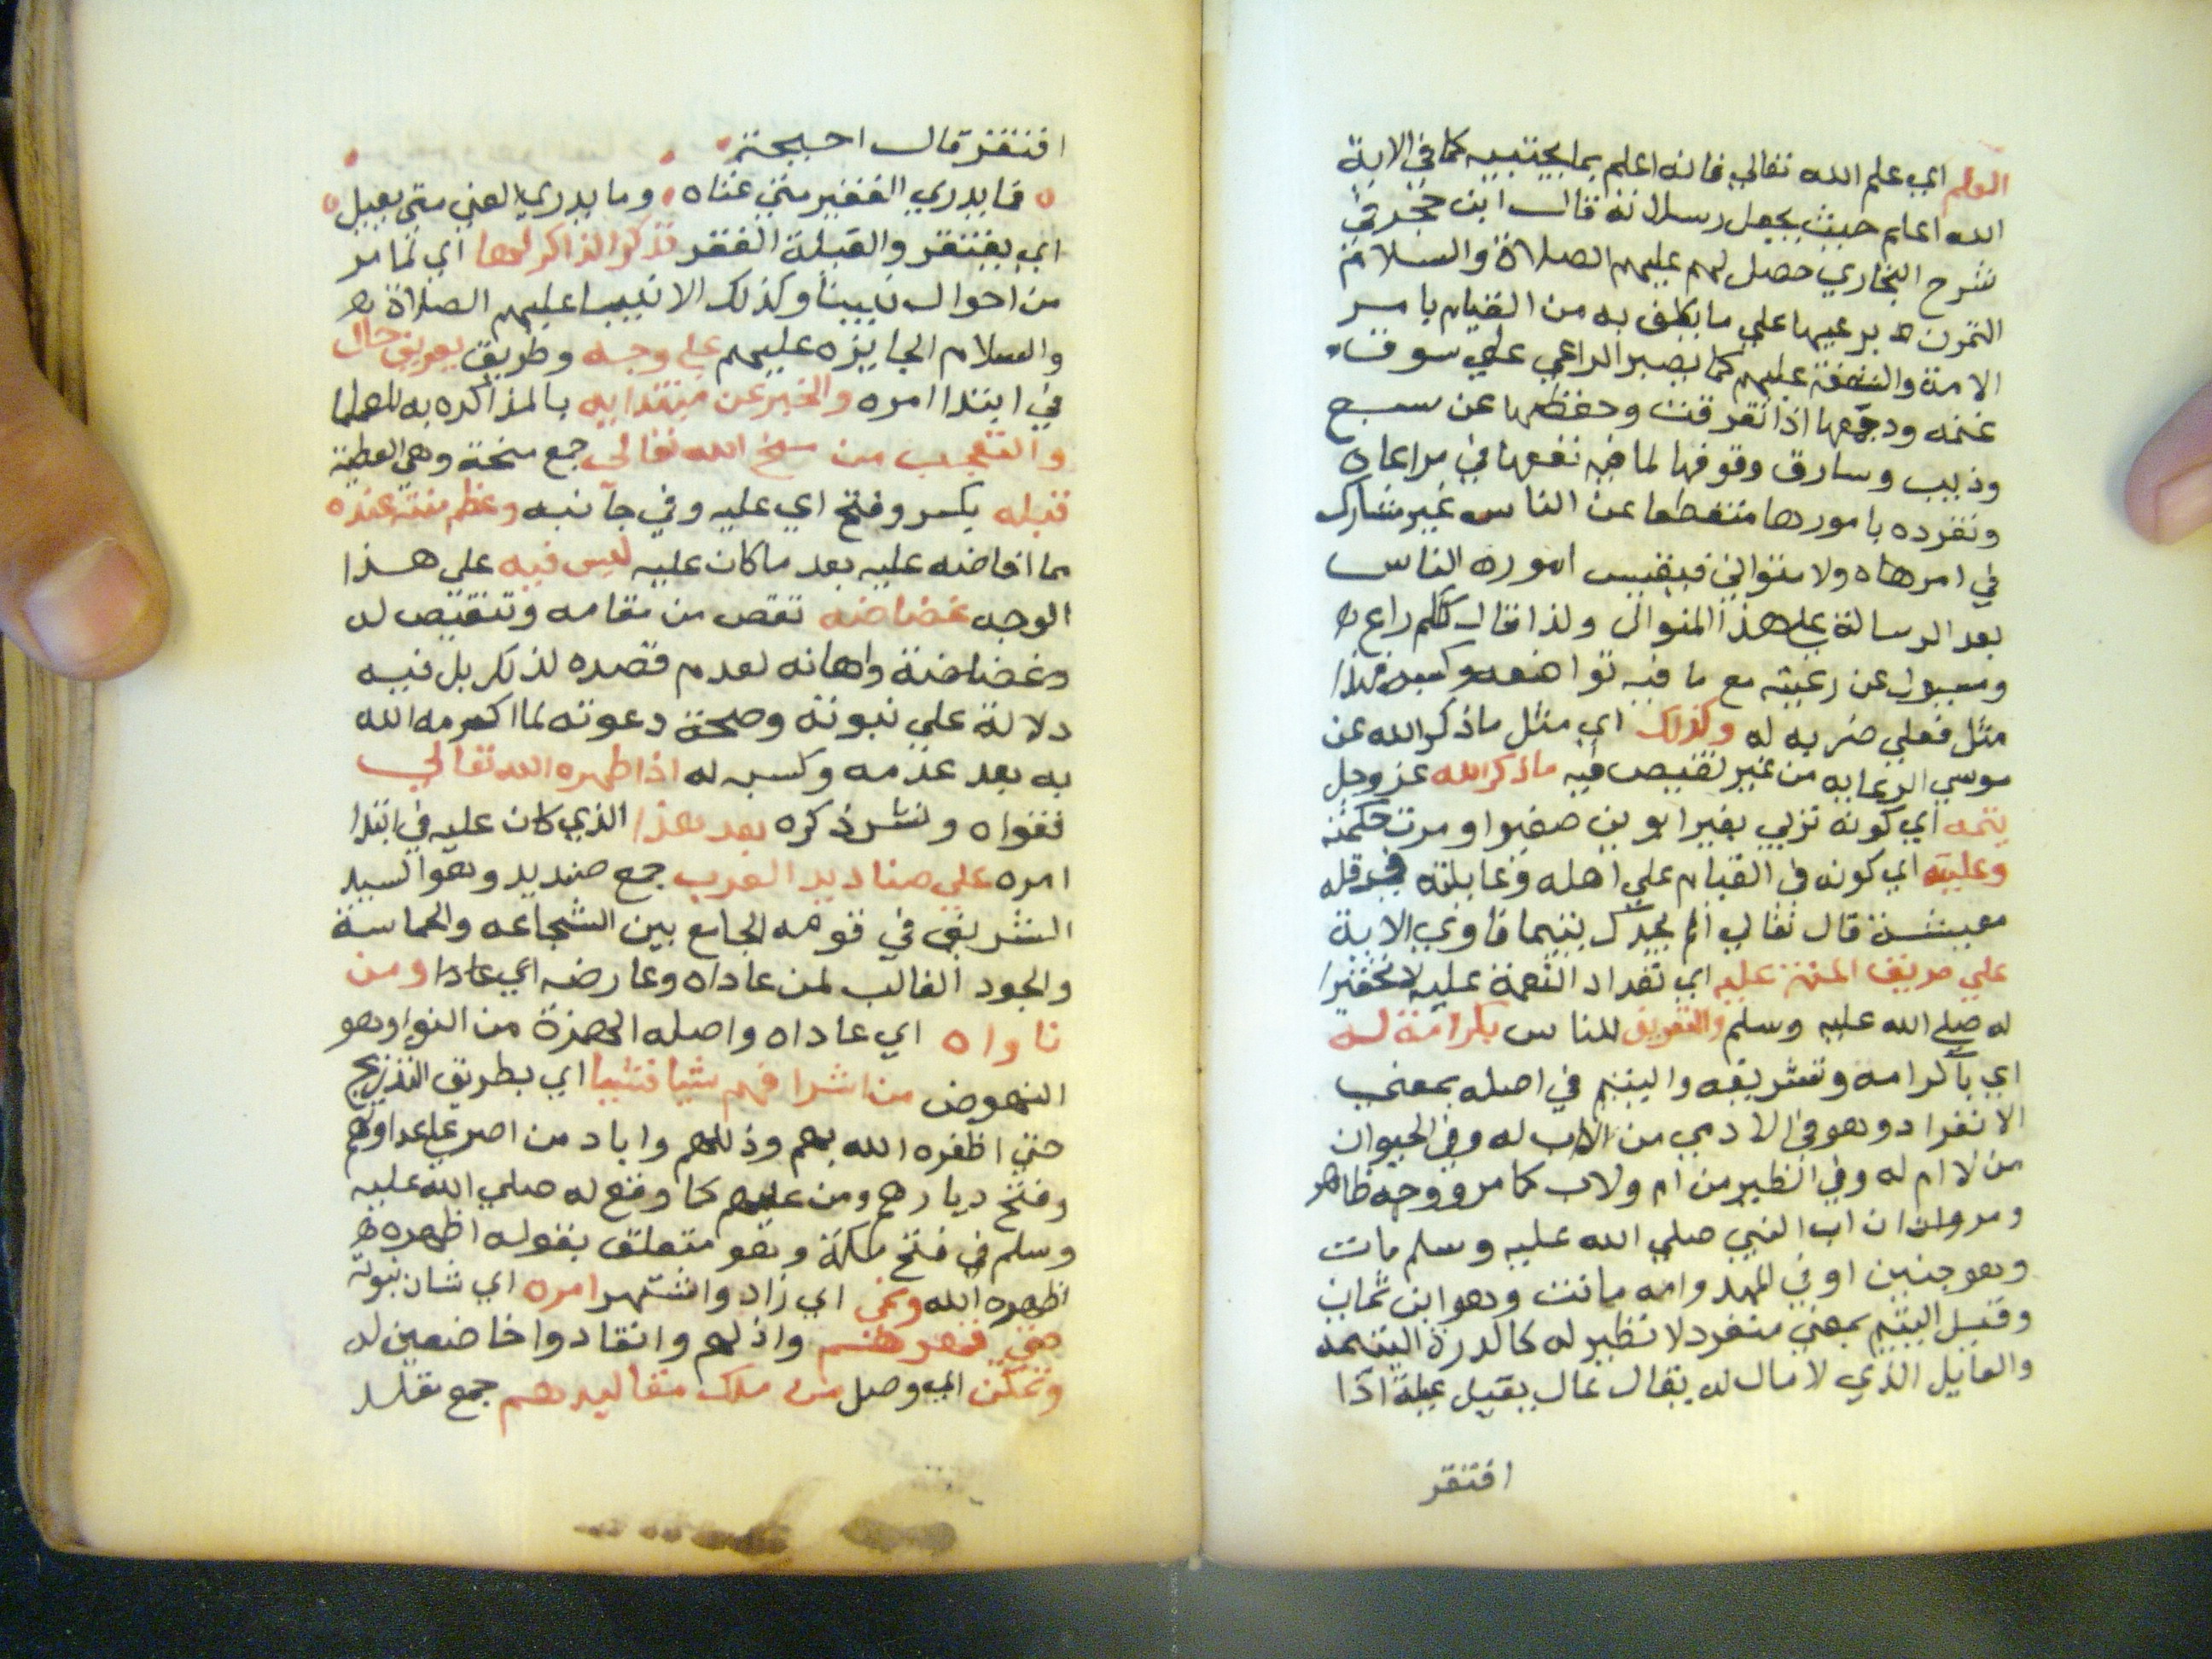 العلم اي علم الله تعالي فانه اعلم بما يجتبيه كما في الاية
الله اعلم حيث يجعل رسالاته قال ابن حجر في
شرح البخاري حصل لهم عليهم الصلاة والسلام
التمرن برعيها علي ما يكلف به من القيام بامر
الامة والشفقة عليهم كما يصبر الراعي علي سوقاء
غنمه ودجمعها اذا تفرقت وحفظها عن سبع
وذييب وسارق وقوفها لما فيه نفعها في مراعاه
وتفرده بامورها منقطعا عن الناس غير مشارك
في امرها ولا متواني فيقيس اموره الناس
بعد الرسالة علي هذا المنوال ولذا قال كلكم راع
ومسيول عن رعيته مع ما فيه تواضعه وكسبه فهذا
مثل فعلي ضربه له وكذلك اي مثل ماذكر الله عن
موسي الرعايه من غير تنقيص فيه ماذكر الله عز وجل
يتمه اي كونه تربي بغير ابوين صغيرا ومرت حكمته
وعليته اي كونه في القيام علي اهله وعايلته في قله
معيشة قال تعالي الم يجدك يتيما فاوي الاية
علي طريق المنة عليه اي تعداد النعمة عليه لا تحقيرا
له صلي الله عليه وسلم والتعريف للناس بكرامة له
اي باكرامه وتشريفه واليتيم في اصله بمعني
الانفراد وهو في الادمي من لااب له وفي الحيوان
من لا ام له وفي الطير من ام ولاب كما مر ووجه ظاهر
ومر وان اب النبي صلي الله عليه وسلم مات
وهو جنين او في المهد وامه ماتت وهو ابن ثمان
وقيل اليتيم بمعني منفرد لا نظير له كالدرة اليتيمه
والعايل الذي لا مال له يقال عال يعيل عيلة اذا
افتقر
افتقر قال احيحة
فما يدري الفقير متي غناه وما يدري الغني متي يعيل
اي يفتقر والعيلة الفقر فذكر الذاكر لها اي لما مر
من احوال نبينا وكذلك الانبيا عليهم الصلاة
والسلام الجايزه عليهم علي وجه وطريق تعريف حال
في ابتدا امره والخبر عن مبتدايه بالمذاكره به للعلما
والتعجب من منح الله تعالي جمع منحة وهي العطية
قبله بكسر وفتح اي عليه وفي جانبه وعظم منته عنده
مما افاضه عليه بعد ما كان عليه ليس فيه علي هذا
الوجه غضاضه نقص من مقامه وتنقيص له
وغضاضة واهانه لعدم قصده لذلك بل فيه
دلالة علي نبوته وصحة دعوته لما اكرمه الله
به بعد عدمه وكسبه له اذ اظهره الله تعالي
فقواه ونشر ذكره بعد هذا الذي كان عليه في ابتدا
امره علي صناديد العرب جمع صنديد وهو السيد
الشريف في قومه الجامع بين الشجاعه والحماسة
والجود الغالب لمن عاداه وعارضه اي عادا ومن
ناواه اي عاداه واصله الهمزة من النوا وهو
النهوض من اشرافهم شيا فشيا اي بطريق التدريج
حتي اظفره الله بهم وذللهم واباد من اصر علي عداوتهم
وفتح ديارهم ومن عليهم كما وقع له صلي الله عليه
وسلم في فتح مكة وهو متعلق بقوله اظهره
اظهره الله ونمي اي زاد واشتهر امره اي شان نبوته
حتي قهرهم واذلهم وانقادوا خاضعين له
وتمكن اي وصل من ملك مقاليدهم جمع مقلد